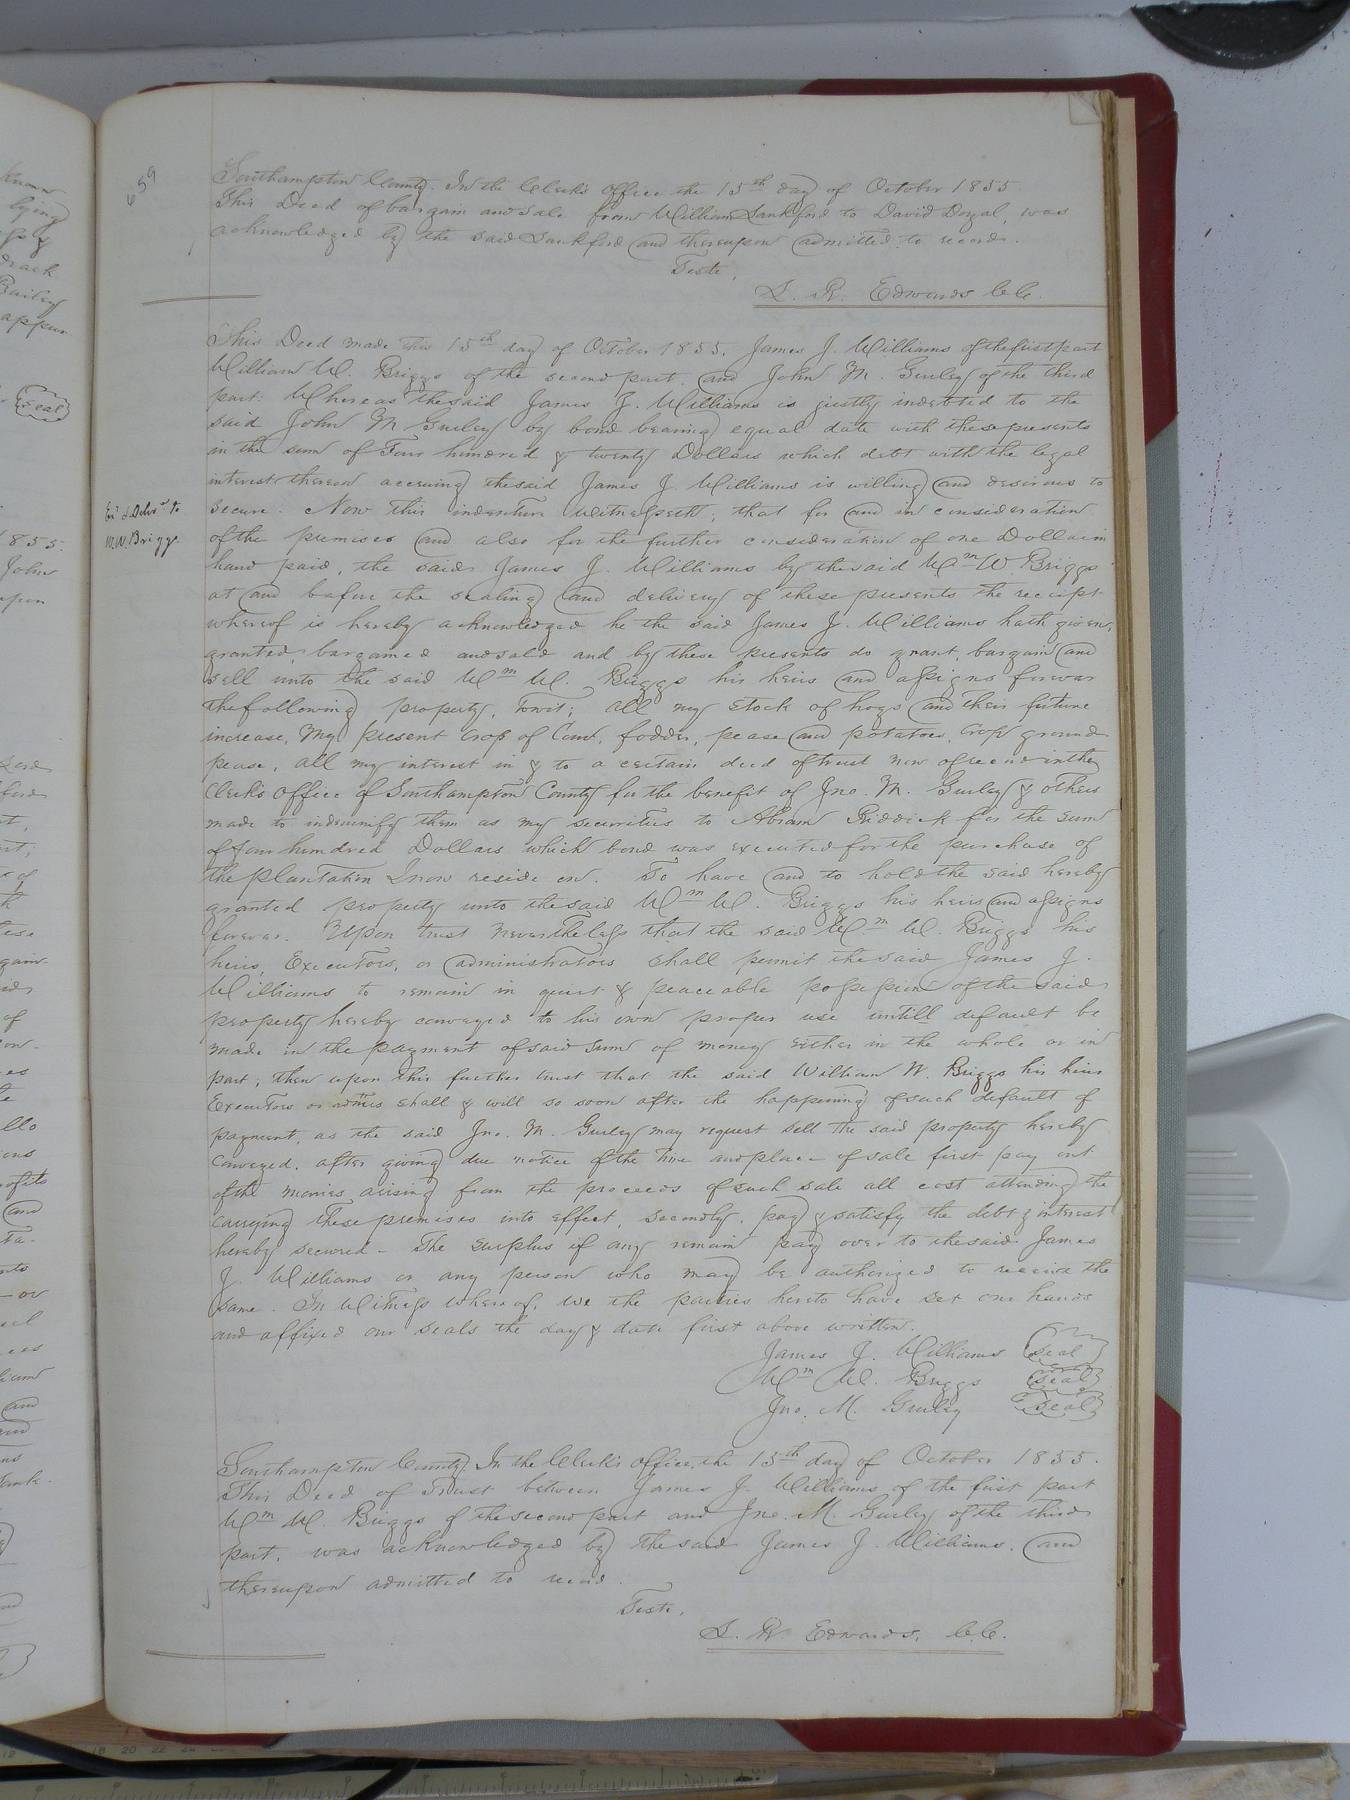 659
Southampton County. In the Clerk's office the 15th day of October 1855.
This Deed of bargain and sale from William Lankford to David Doyal, was
acknowledged by the said Lankford and thereupon admitted to record.
Teste,
L. R. Edwards C.C.
This Deed made this 15th day of October 1855. James J. Williams of the first part
William W. Briggs of the second part, and John M. Gurley of the third
part. Whereas the said James J. Williams is justly indebted to the
said John M Gurley by bond bearing equal date with these presents
in the sum of Four hundred & twenty Dollars which debt with the legal
interest thereon accruing the said James J Williams is willing and desirous to
secure. Now this indenture Witnesseth, that for and in consideration
of the premises and also for the further consideration of one Dollar in
hand paid, the said James J. Williams by the said Wm W Briggs
at and before the sealing and delivery of these presents the receipt
whereof is hereby acknowledged he the said James J. Williams hath given,
granted, bargained and sold and by these presents do grant, bargain and
sell unto the said Wm W. Briggs his heirs and assigns forever
the following property, towit; all my stock of hogs and their future
increase, My present crop of Corn, fodder, pease and potatoes, crop ground
pease, all my interest in & to a certain deed of trust now of record in the
Clerk's office of Southampton County for the benefit of Jno. M. Gurley & others
made to indemnify them as my securities to Abram Riddick for the sum
of four hundred Dollars which bond was executed for the purchase of
the plantation I now reside on. To have and to hold the said hereby
granted property unto the said Wm W. Briggs his heirs and assigns
forever. Upon trust nevertheless that the said Wm W. Briggs his
heirs, Executors, or administrators shall permit the said James J.
Williams to remain in quiet & peaceable possession of the said
property hereby conveyed to his own proper use untill default be
made in the payment of said sum of money either in the whole or in
part; then upon this further trust that the said William W. Briggs his heirs
Executors or admrs shall & will so soon after the happening of such default of
payment, as the said Jno. M. Gurley may request sell the said property hereby
conveyed, after giving due notice of the time and place of sale first pay out
of the monies arising from the proceeds of such sale all cost attending the
carrying these premises into effect, secondly, pay & satisfy the debt & interest
hereby secured - The surplus if any remain pay over to the said James
J. Williams or any person who may be authorized to receive the
same. In Witness whereof, we the parties hereto have set our hands
and affixed our seals the day & date first above written.
James J. Williams Seal
Wm W. Briggs Seal
Jno. M. Gurley Seal
Exd & Deld to
W.W. Briggs.
Southampton County. In the Clerk's office, the 15th day of October 1855.
This Deed of Trust between James J. Williams of the first part
Wm W. Briggs of the second part and Jno. M. Gurley of the third
part, was acknowledged by the said James J. Williams, and
thereupon admitted to record.
Teste,
L. R. Edwards, C.C.